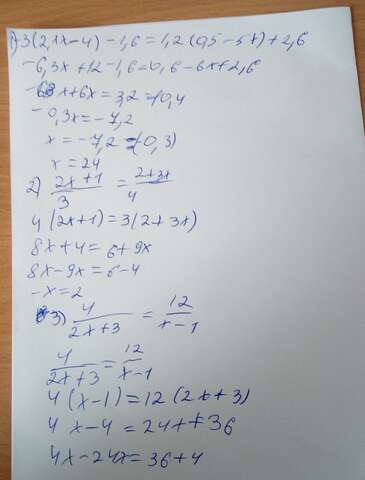 1) -3(2,1x-4) - 1,6 = 1,2(0,5 - 5x) + 2,6
-6,3x + 12 - 1,6 = 0,6 - 6x + 2,6
-6,3x + 6x = 3,2 - 10,4
-0,3x = -7,2
x = -7,2 : (-0,3)
x = 24
2) 2x+1/3 = 2+3x/4
4(2x+1) = 3(2+3x)
8x+4 = 6+9x
8x-9x = 6-4
-x = 2
3) 4/2x+3 = 12/x-1
4/2x+3 = 12/x-1
4(x-1) = 12(2x+3)
4x-4 = 24x+36
4x-24x = 36+4